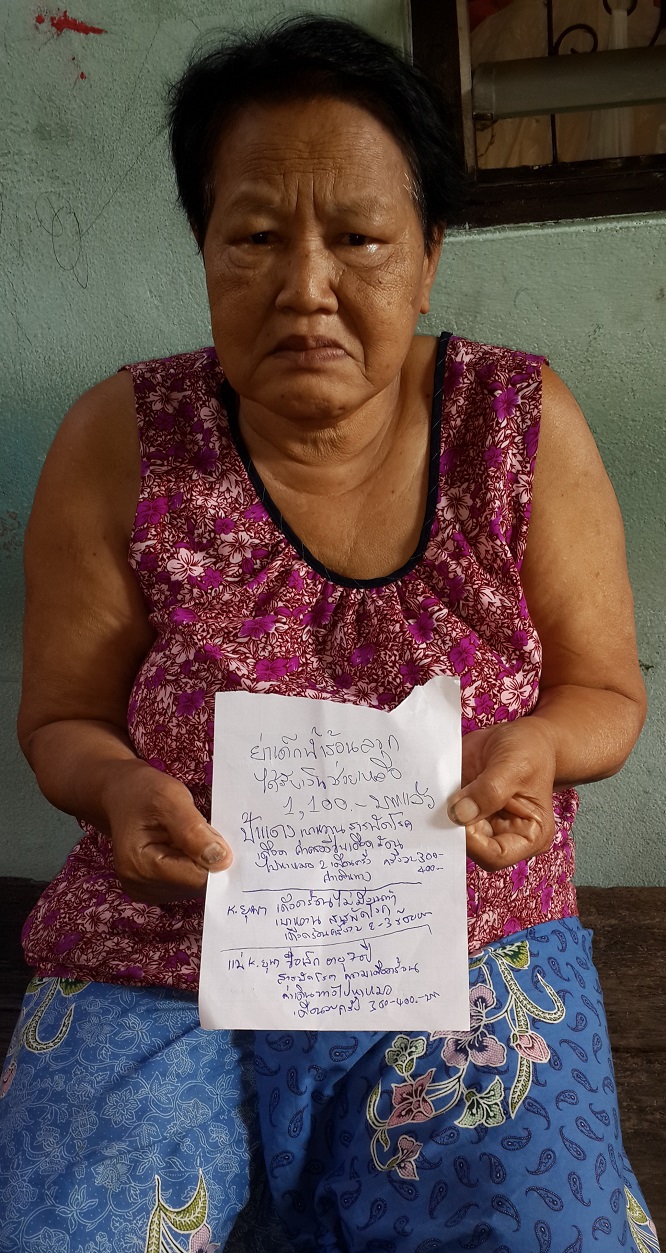 ย่าเด็กที่ร้อนลวก
ได้รับเงินช่วยเหลือ
1,100.- บาทแล้ว
ป้าแดง เบาหวาน สารพัดโรค
เดือดร้อน
ไปหาหมอ 2 เดือน ครั้งละ 300-
400.-
ค่าเดินทาง
K. ยุพา เดือดร้อนไม่มี
เบาหวาน สารพัดโรค
เดือดร้อน 2-3 ร้อยบาท
แม่ K. ยุพา อายุ 70 ปี
สารพัดโรค ความเดือดร้อน
ค่าเดินทางไปหาหมอ
เดือนละครั้ง 300-400.-บาท